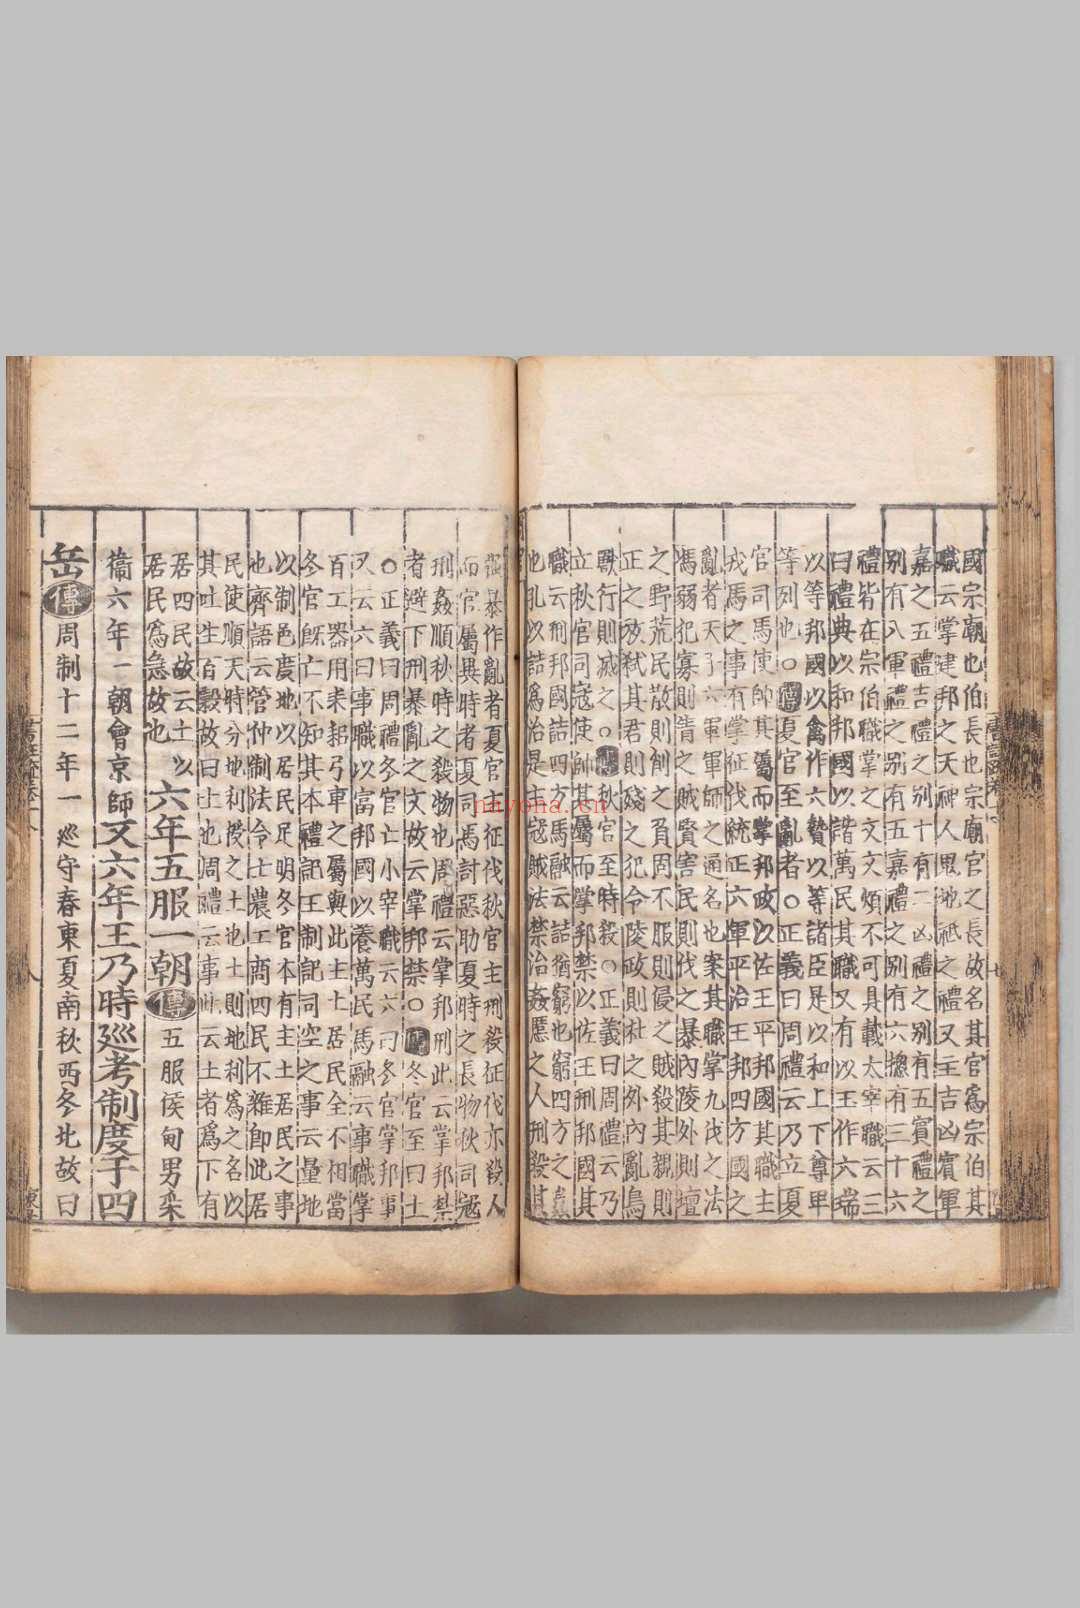 國宗廟也伯長也宗廟官之長故名其官爲宗伯其
職云掌建邦之天神人鬼地祇之禮又主吉凶賓軍
嘉之五禮吉禮之别十有二凶禮之别有五賓禮之
别有八軍禮之别有五嘉禮之别有六摠有三十六
禮皆在宗伯職掌之文文煩不可具載太宰職云三
曰禮典以和邦國以諧萬民其職又有以王作六端
以等邦國以禽作六贄以等諸臣是以和上下尊卑
等列也○傳夏官至亂者○正義曰周禮云乃立夏
官司馬使帥其屬而掌邦政以佐王平邦國其職主
戎馬之事有掌征伐統正六軍平治王邦四方國之
亂者天子六軍軍師之通名也案其職掌九伐之法
馮弱犯寡則眚之賊賢害民則伐之暴內陵外則壇
之野荒民散則削之負固不服則侵之賊殺其親則
正之放弑其君則殘之犯令陵政則杜之外內亂鳥
獸行則滅之○傳秋官至時殺○正義曰周禮云乃
立秋官司寇使帥其屬而掌邦禁以佐王刑邦國其
職云刑邦國詰四方馬融云詰猶窮也窮四方之姦
也孔以詰爲治是主寇賊法禁治姦慝之人刑殺其
強暴作亂者夏官主征伐秋官主刑殺征伐亦殺人
而官屬異時者夏司馬討惡助夏時之長物秋司寇
刑姦順秋時之殺物也周禮云掌邦刑此云掌邦禁
者避下刑暴亂之文故云掌邦禁○傳冬官至曰土
○正義曰周禮冬官亡小宰職云六曰冬官掌邦事
又云六曰事職以富邦國以養萬民馬融云事職掌
百工器用耒耜弓車之屬與此主土居民全不相當
冬官旣亡不知其本禮記王制記司空之事云量地
以制邑度地以居民足明冬官本有主土居民之事
也齊語云管仲制法令士農工商四民不雜卽此居
民使順天時分地利授之土也土則地利爲之名以
其吐生百穀故曰土也周禮云事此云土者爲下有
居四民故云土以
居民爲急故也
六年五服一朝傳五服侯甸男采
衞六年一朝會京師又六年王乃時廵考制度于四
岳傳周制十二年一廵守春東夏南秋西冬北故曰
nayona.cn